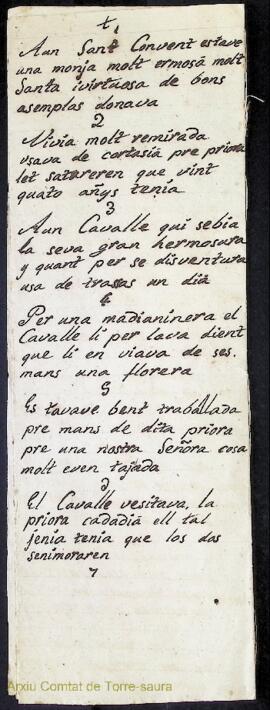 t.
1
Aun Sant Convent estave
una monja molt ermosa molt
Santa ivirtuosa de bons
asemplas donava
2
Vivia molt remirada
vsava de cortasia pre priora
let satureren que vint
quato añys tenia
3
Aun Cavalle qui sebia
la seva gran hermosura
y quant per se disventura
usa de trassas un dia
4
Per una madianinera el
Cavalle li per lava dient
que li en viava de ses.
mans una florera
5
Es tavave bent traballada
pre mans de dita priora
pre una nostra Señora cosa
molt even tajada
6
El Cavalle vesitava, la
priora cadadia ell tal
jenia tenia que los dos
senimoraren
7
Arxiu Comtat de Torre-saura